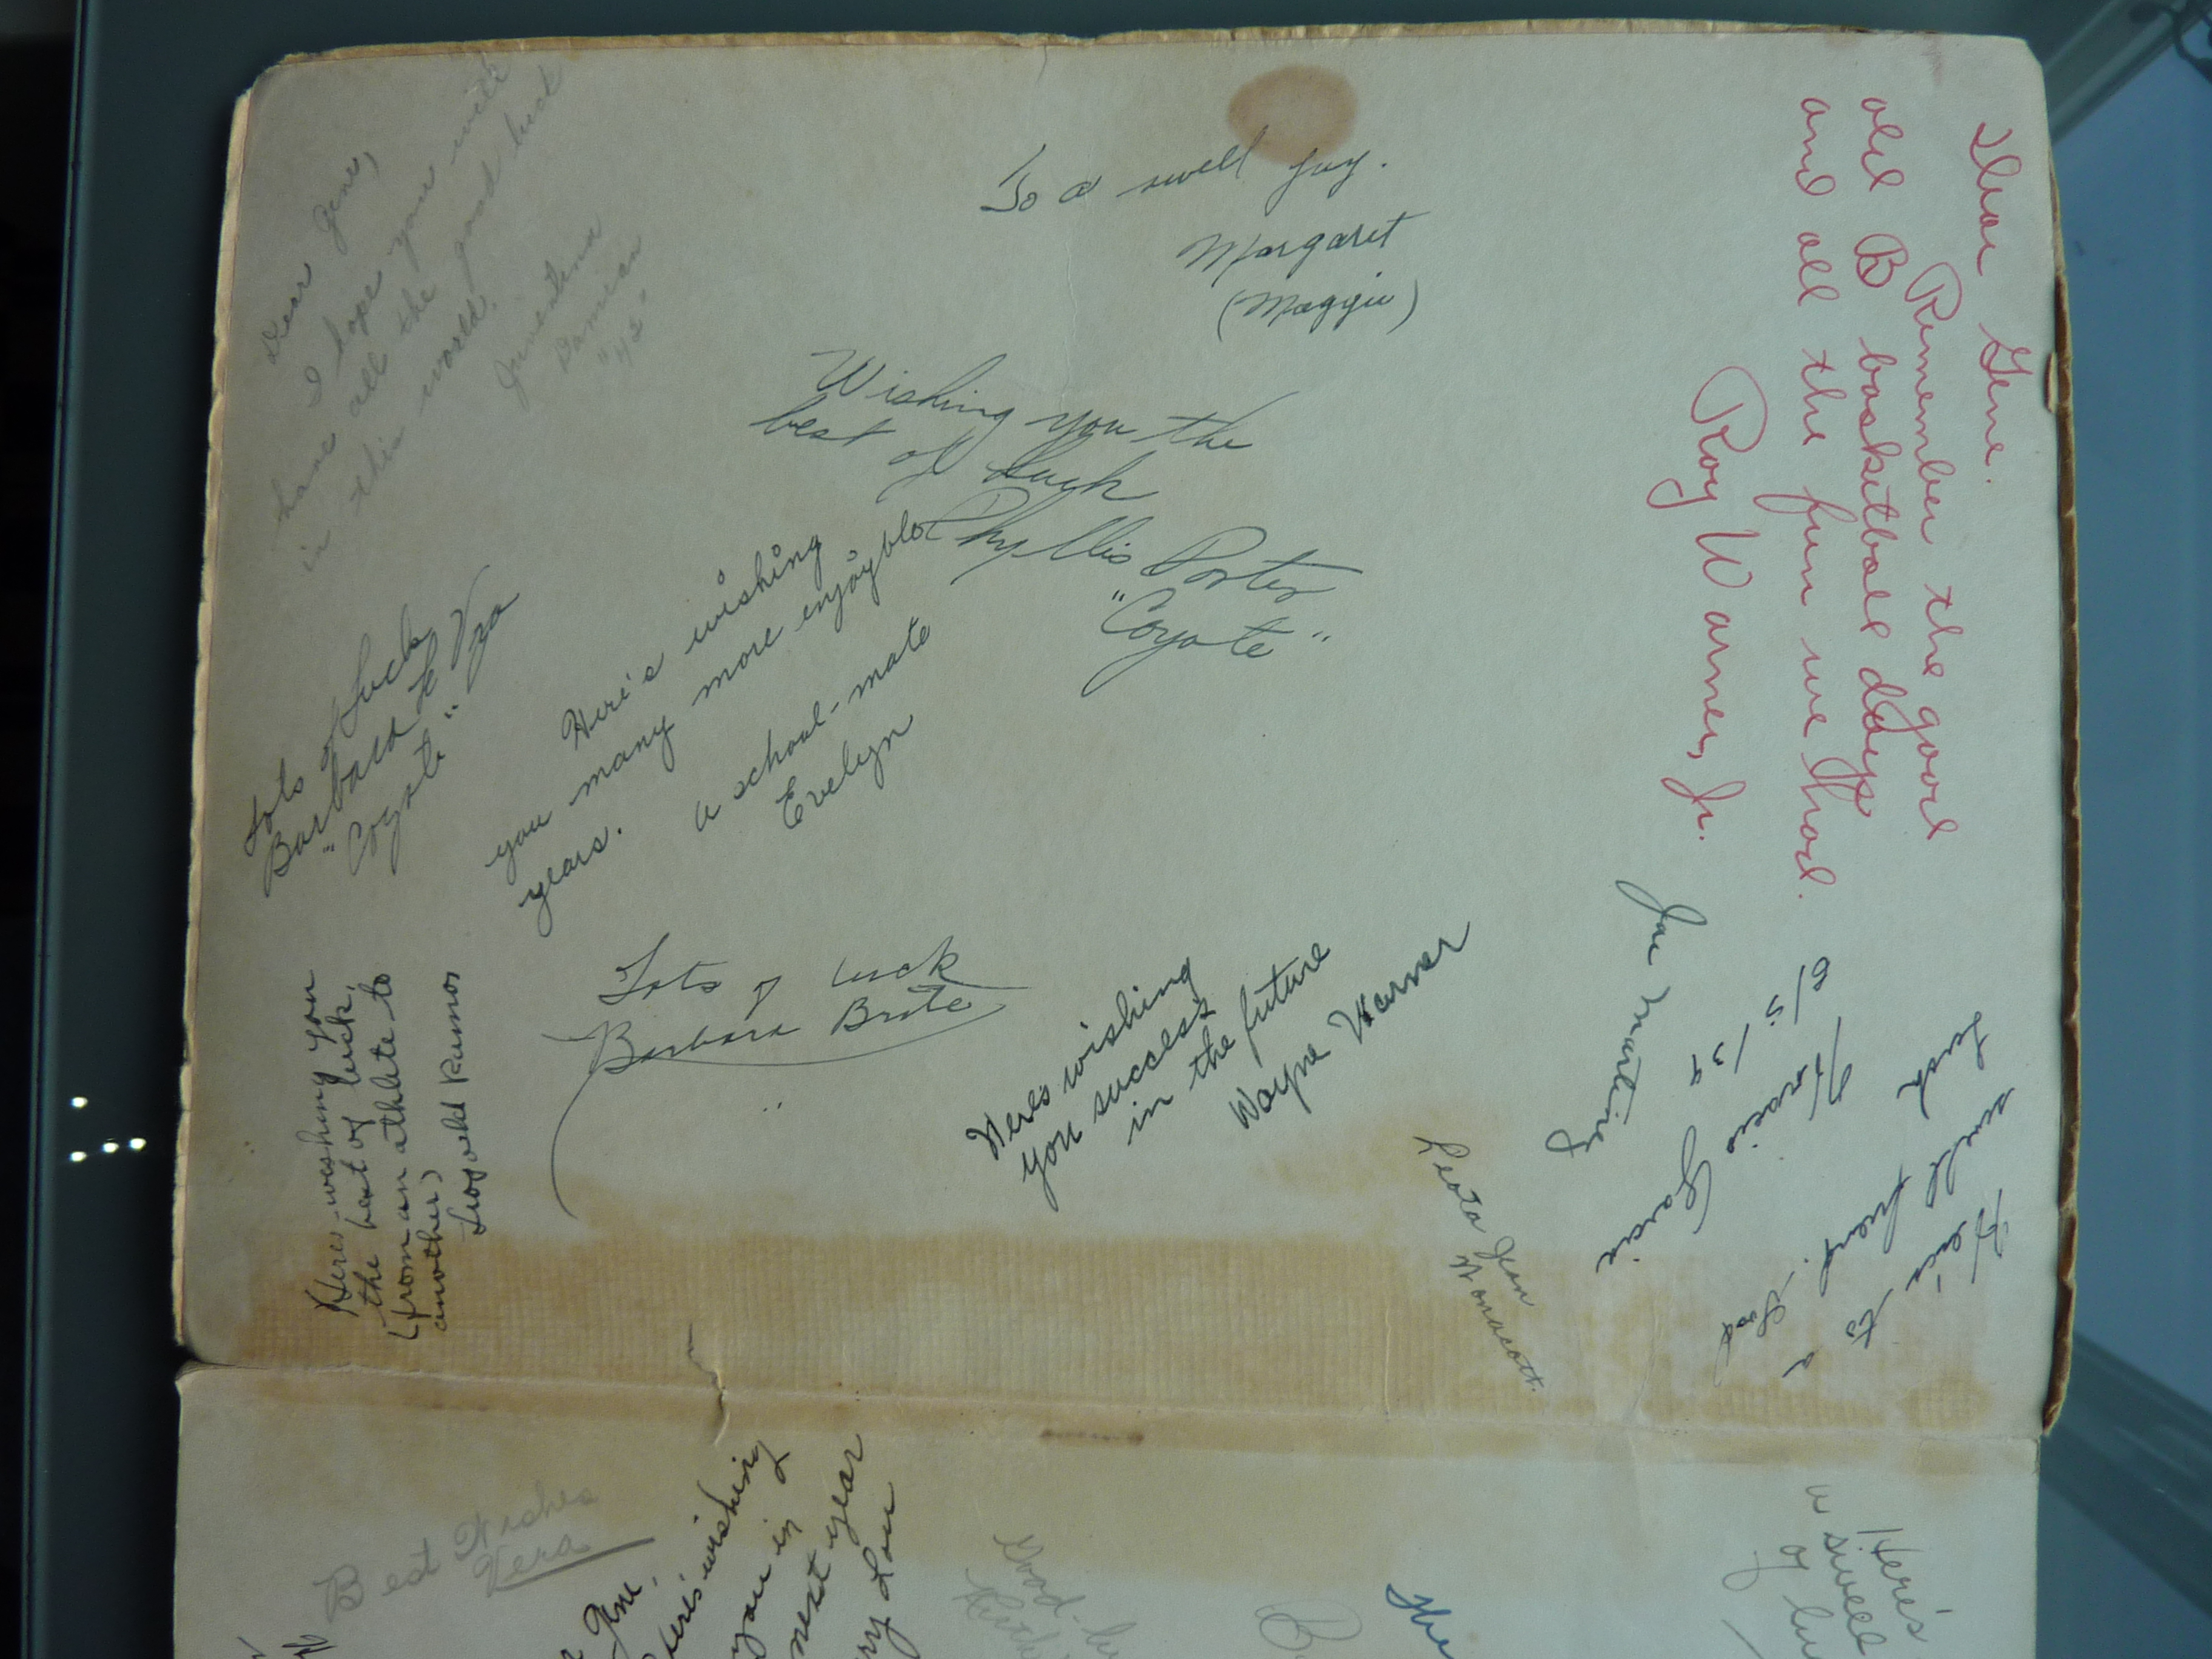 Dear Gene,
I hope you will
have all the good luck
in this world.
"42"
To a swell guy.
Margaret
(Maggie)
Dear Gene.
Remember the good
old B basketball days
and all the fun we had.
Roy Warner, Jr.
Wishing you the
best of luck
Phyllis Porter
"Coyote"
Lots of Luck
Barbara
"Coyote"
Here's wishing
you many more enjoyble
years.
a school-mate
Evelyn
Here's wishing you
the best of luck,
(from an athlete to
another)
Leopold Ramos
Lots of luck
Barbara
Here's wishing
you success
in the future
Wayne Warner
Joe Martinez
Here's to a
swell friend. Good
Luck
Horacio Garcia
5/5/39
Leota Jean
Wonacott.
Best Wishes
Vera
Gene,
Here's wishing
you in
next year
Lou
Good
B
the
Here's
a swell
of lu